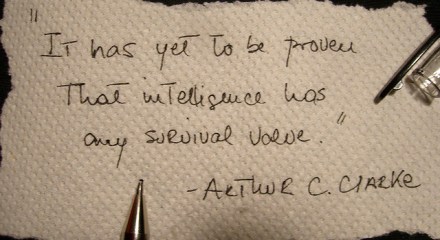 "It has yet to be proven
That intelligence has
any survival value."
-Arthur C. Clarke